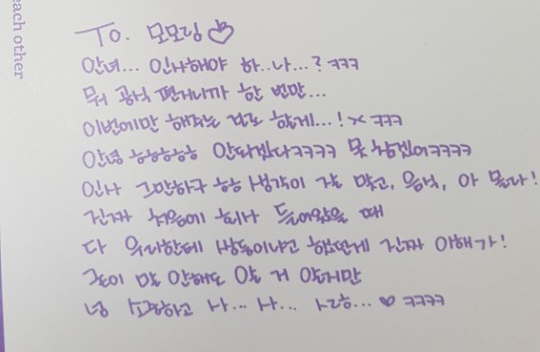 each other
To. 모모링♡
안녕... 인사해야 하..나...? ㅋㅋㅋ
뭐 공식 편지니까 한 번만...
이번에만 해주는 걸로 할게...!>< ㅋㅋㅋ
안녕 하하하하하 안되겠다ㅋㅋㅋㅋ 못 참겠어ㅋㅋㅋㅋ
인사 그만하구 생각이 많고, 음식, 아 몰라!
진짜 처음에 회사 들어왔을 때
다 우리한테 쌍둥이냐고 했던게 진짜 이해가!
굳이 말 안해도 알 거 알지만
넝 소중하고 사... 사... 사랑... ♥ ㅋㅋㅋㅋ